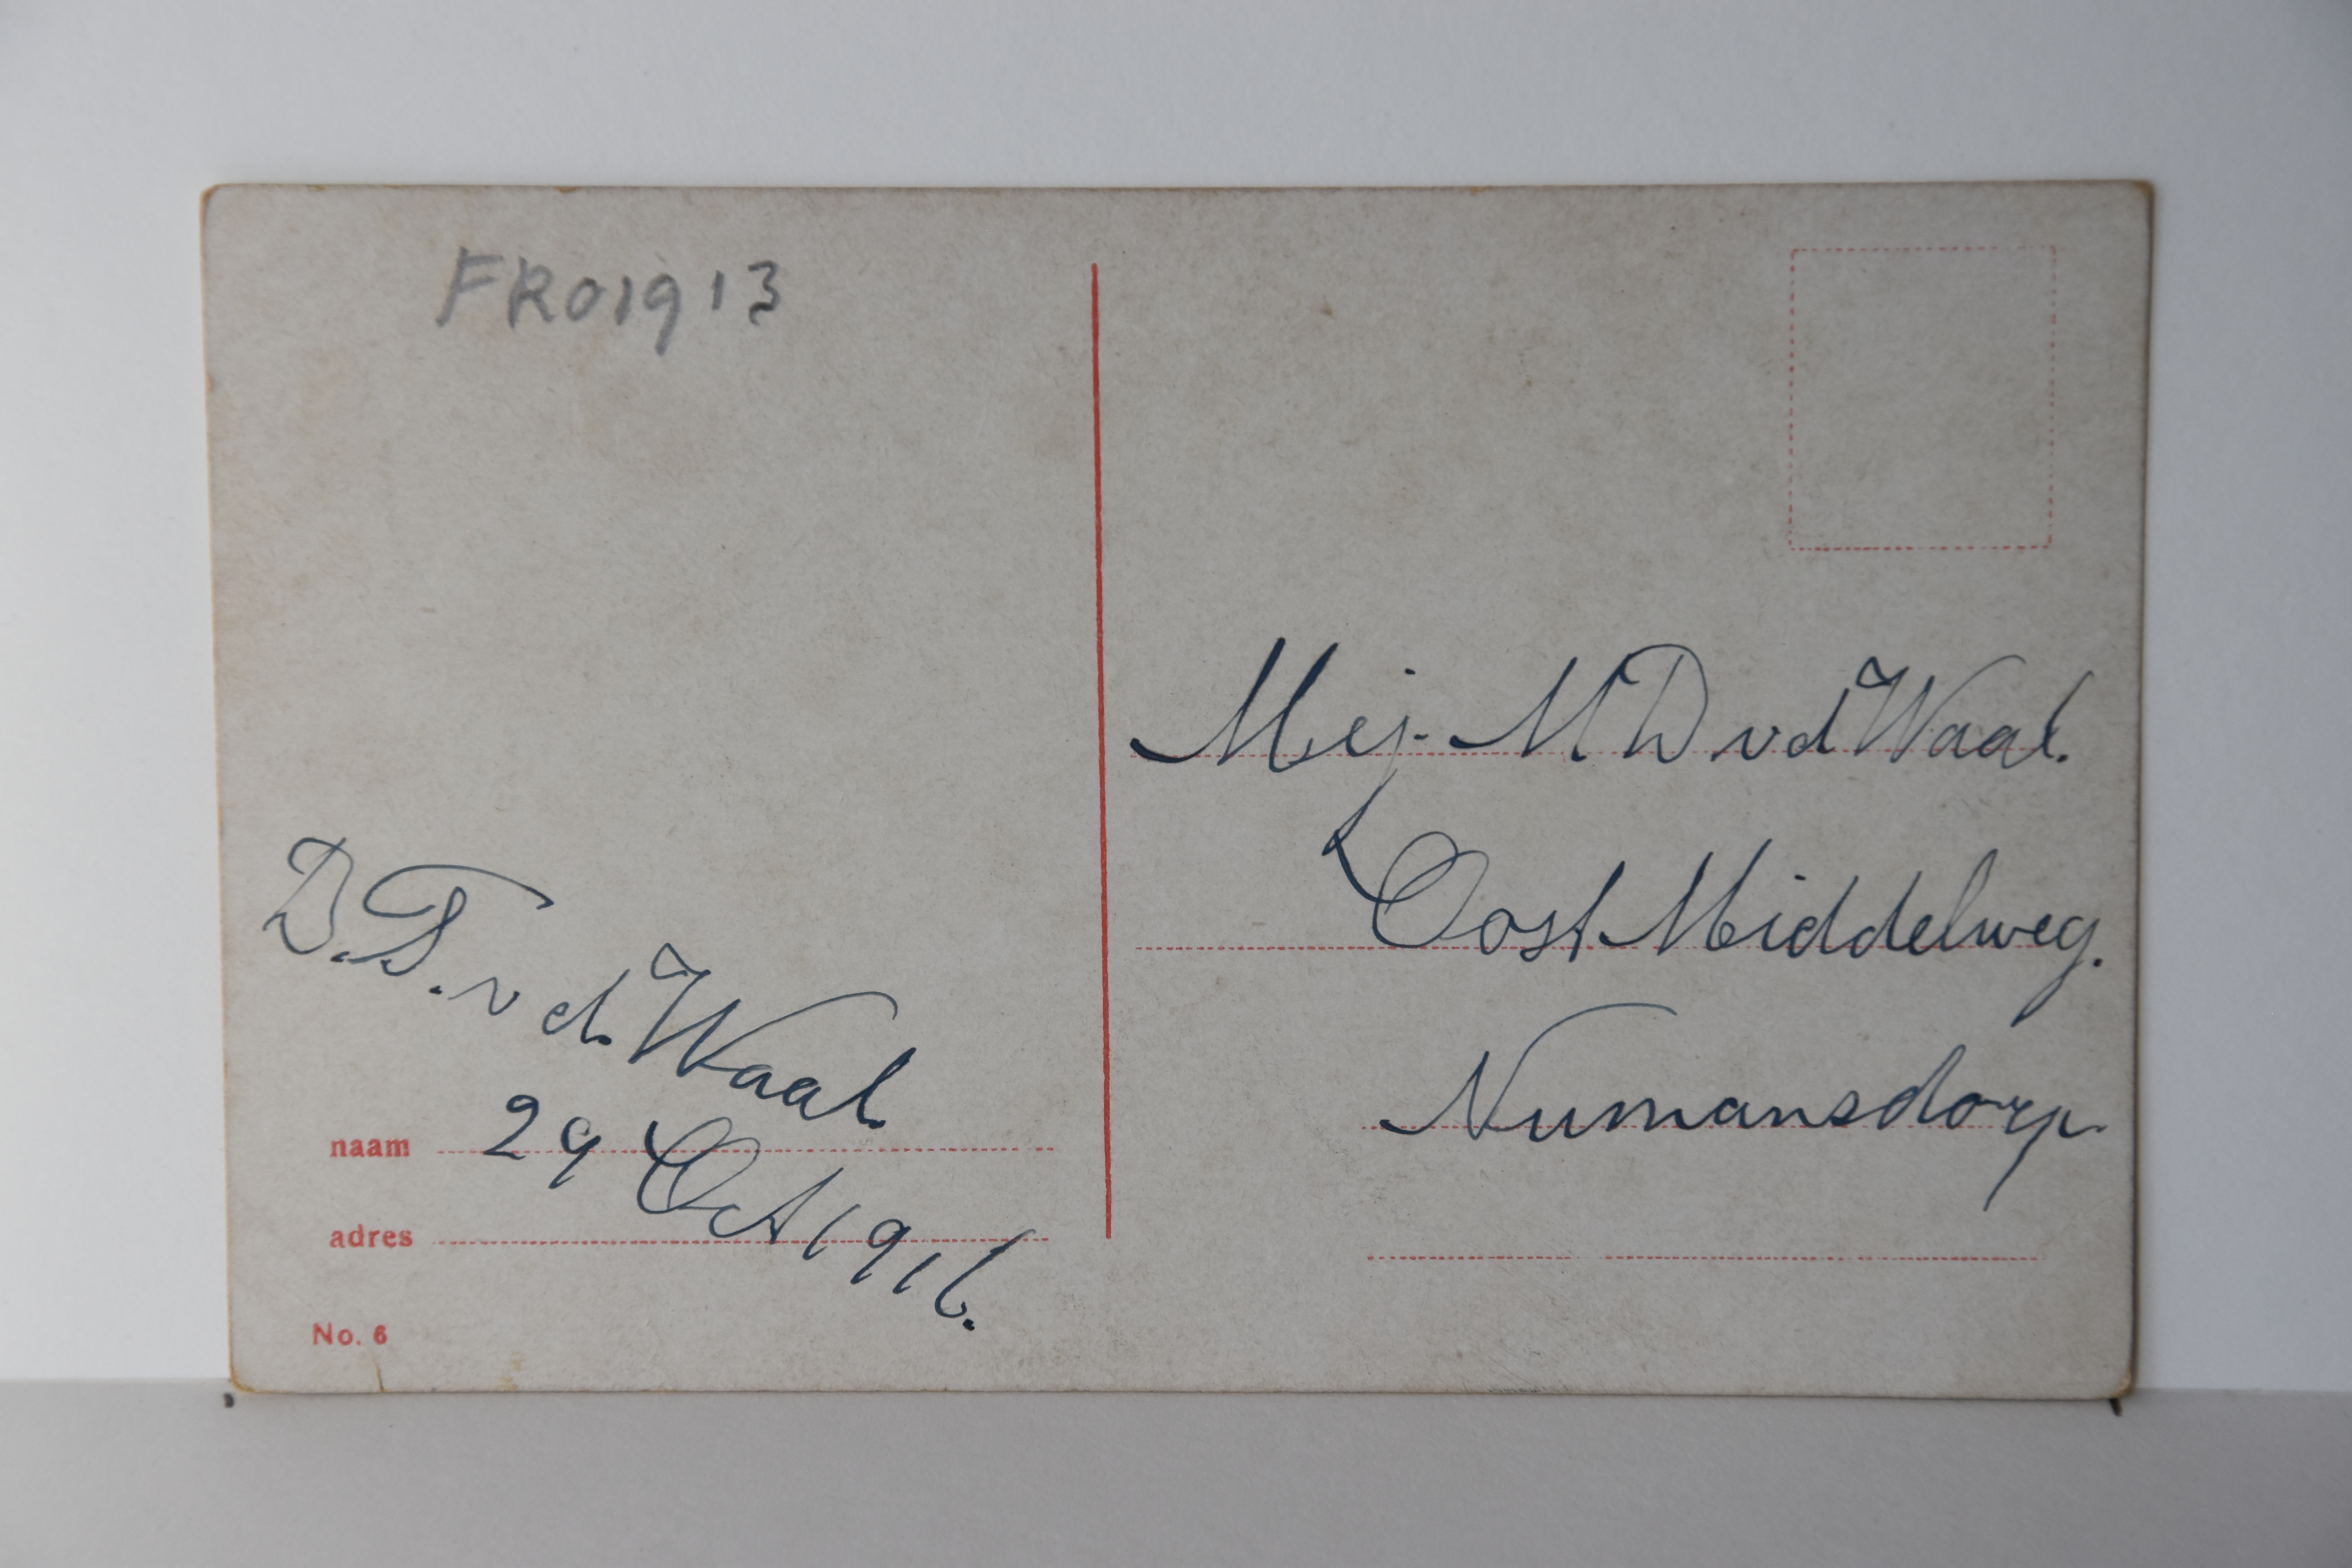 FRO1913
D. T. v d. Waal.
29 Oct 1916.
naam
adres
No. 6
Mej. M D v d Waal.
Oost Middelweg.
Numansdorp.